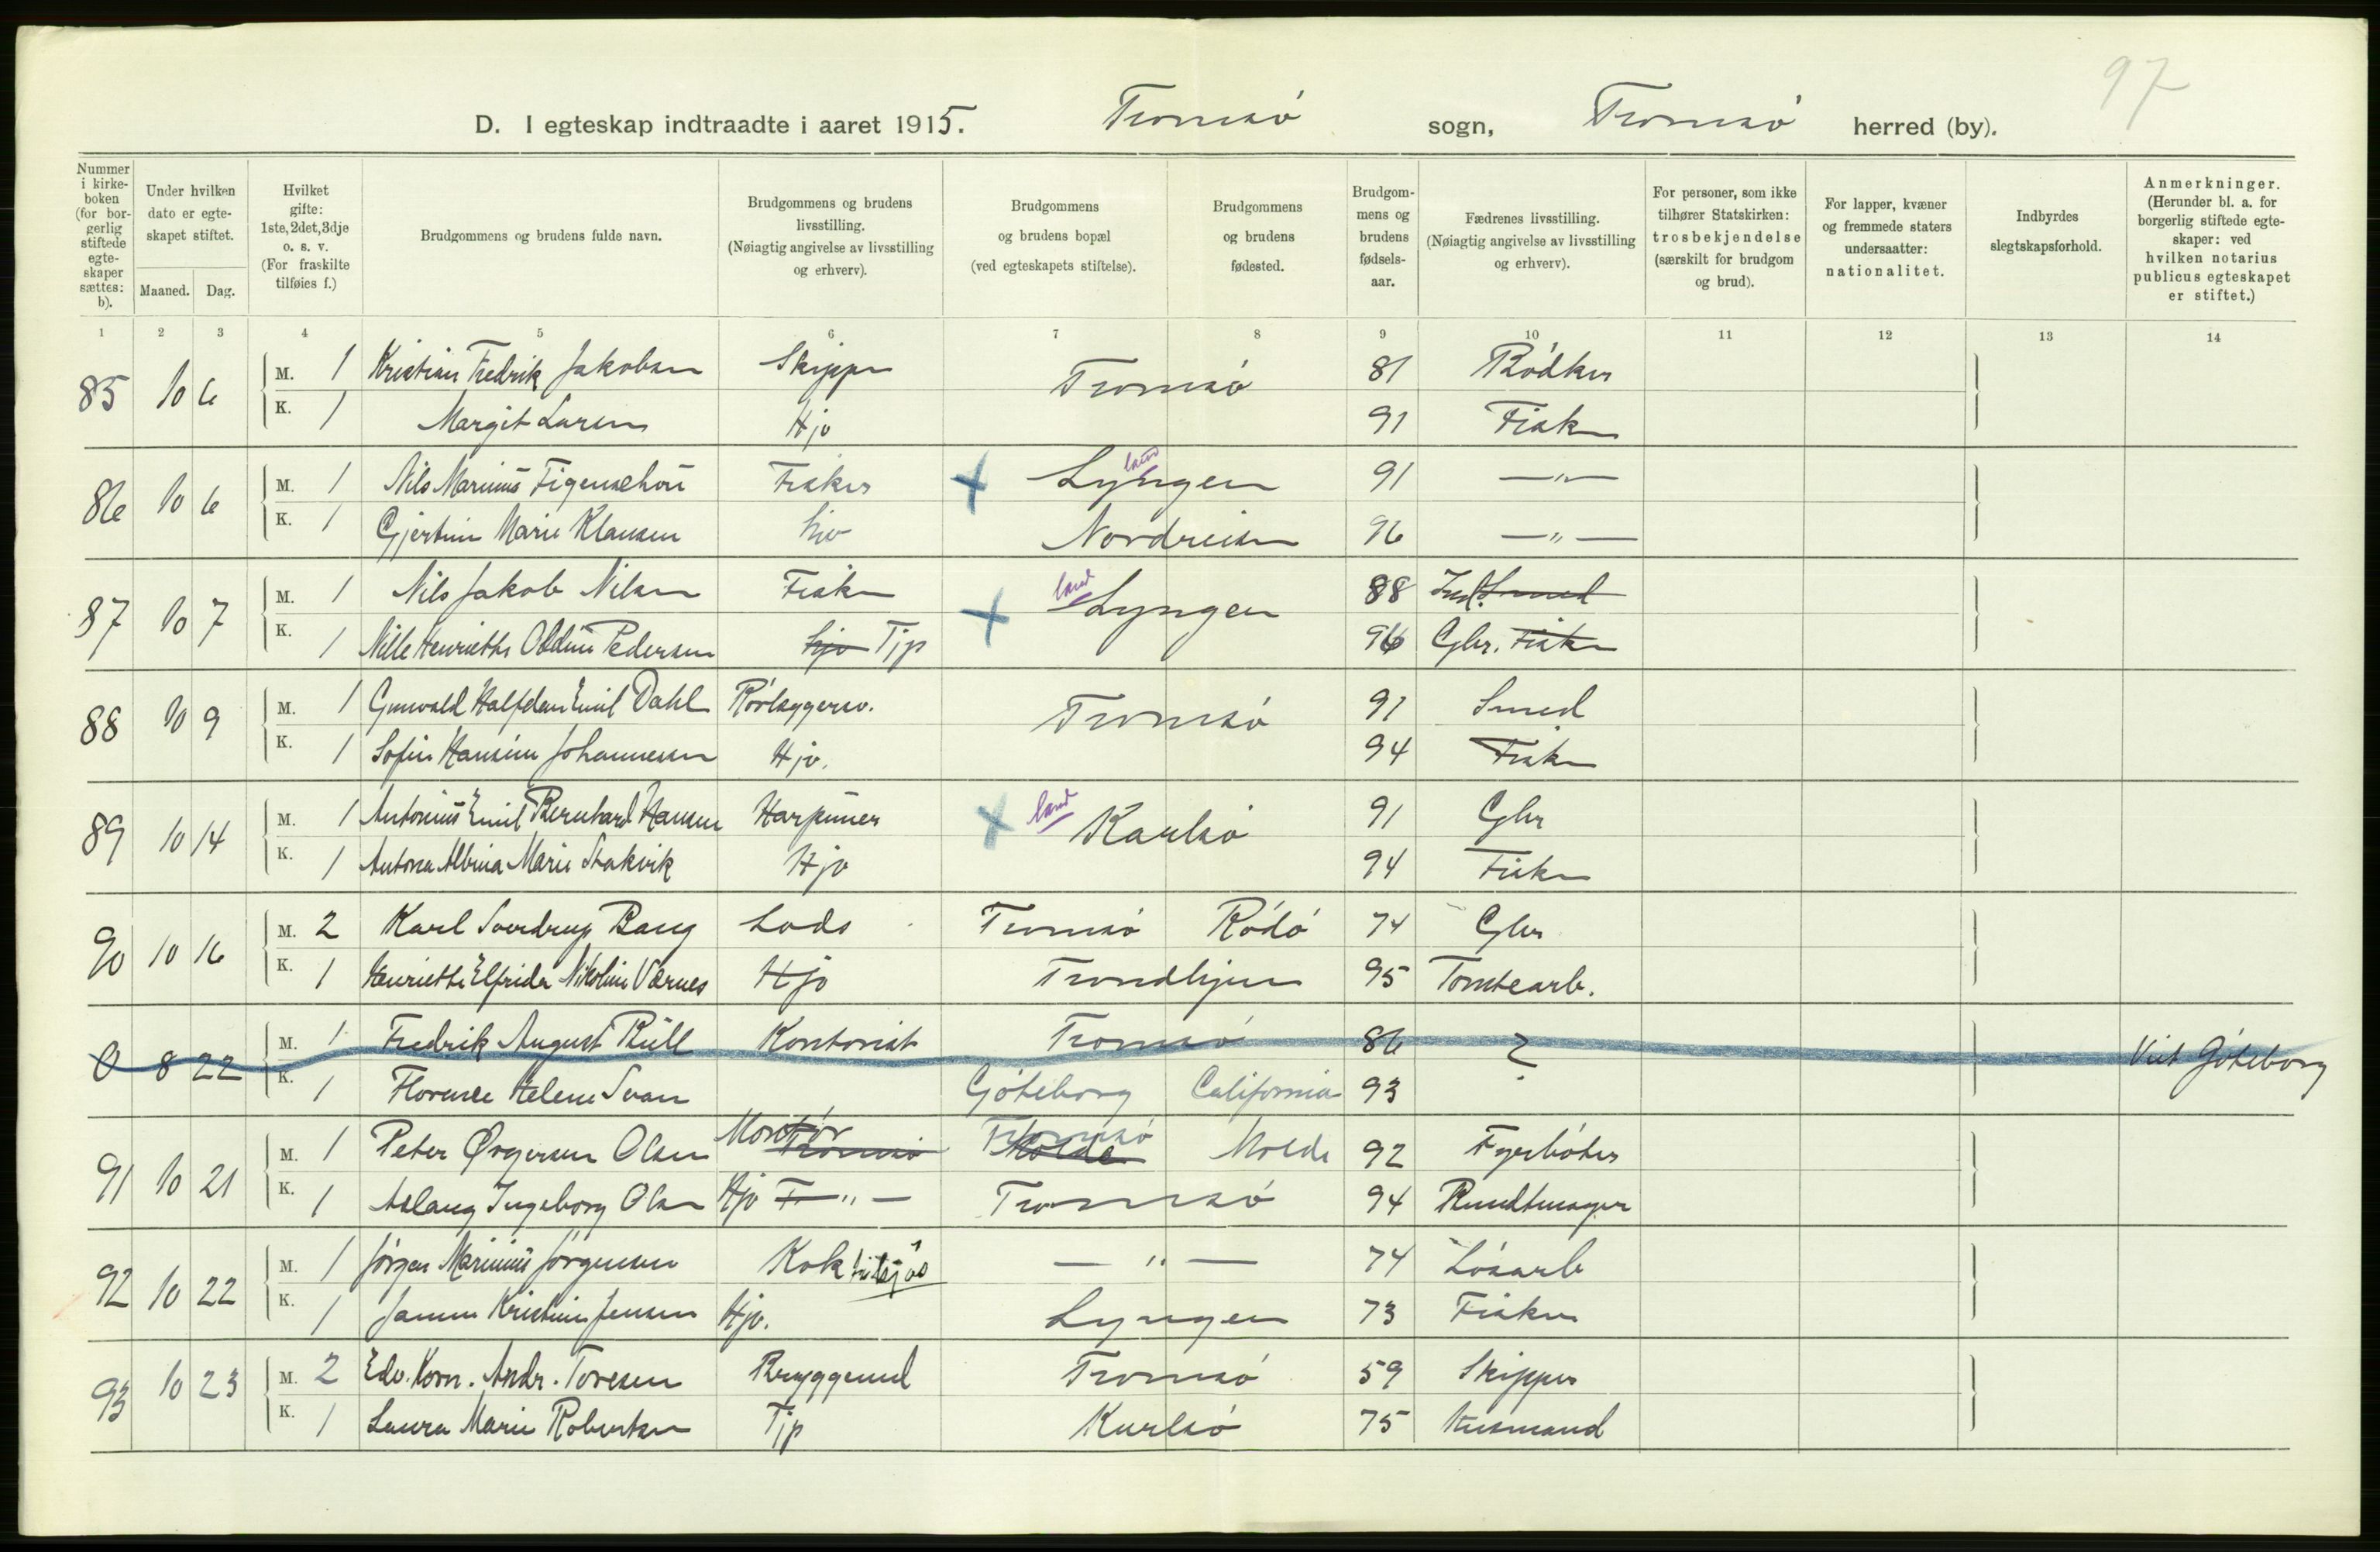 97
D. I egteskap indtraadte i aaret 1915. Tromsø sogn, Tromsø herred (by).
Nummer i kirke-boken (for bor-gerlig stiftede egte-skaper sættes: b).
Under hvilken dato er egte-skapet stiftet.
Maaned. Dag.
Hvilket gifte: 1ste, 2det, 3dje o. s. v. (For fraskilte tilføies f.)
Brudgommens og brudens fulde navn.
Brudgommens og brudens livsstilling. (Nøiagtig angivelse av livsstilling og erhverv).
Brudgommens og brudens bopæl (ved egteskapets stiftelse).
Brudgommens og brudens fødested.
Brudgom-mens og brudens fødsels-aar.
Fædrenes livsstilling. (Nøiagtig angivelse av livsstilling og erhverv).
For personer, som ikke tilhører Statskirken: trosbekjendelse (særskilt for brudgom og brud).
For lapper, kvæner og fremmede staters undersaatter: nationalitet.
Indbyrdes slegtskapsforhold.
Anmerkninger. (Herunder bl. a. for borgerlig stiftede egte-skaper: ved hvilken notarius publicus egteskapet er stiftet.)
1 2 3 4 5 6 7 8 9 10 11 12 13 14
85 10 6 M. 1 Kristian Fredrik Jakobsen Skipper Tromsø 81 Rødker
K. 1 Margit Larsen Hjv 91 Fisker
86 10 6 M. 1 Nils Marinus Figenschou Fisker Lyngen land 91 —"—
K. 1 Gjertine Marie Klausen hjv Nordreisen 96 —"—
87 10 7 M. 1 Nils Jakob Nilsen Fisker land Lyngen 88 Ind. Smed
K. 1 Nille Henriette Oldine Pedersen hjv Tjp 96 Gbr. Fisker
88 10 9 M. 1 Gunvald Halfdan Emil Dahl Rørlæggersv. Tromsø 91 Smed
K. 1 Sofie Hansine Johannessen Hjv. 94 Fisker
89 10 14 M. 1 Antonius Emil Bernhard Hansen Harpuner land Karlsø 91 Gbr
K. 1 Antona Albina Marie Stakvik Hjv 94 Fisker
90 10 16 M. 2 Karl Sverdrup Bang Lods Tromsø Rødø 74 Gbr
K. 1 Henriette Elfrida Nikoline Værnes Hjv Trondhjem 95 Tomtearb.
0 8 22 M. 1 Fredrik August Rüll Kontorist Tromsø 86 ? Viet Göteborg
K. 1 Florence Helene Svan Göteborg California 93
91 10 21 M. 1 Peter Ørgersen Olsen Montør Tromsø Tromsø Molde Molde 92 Fyrbøter
K. 1 Aslaug Ingeborg Olsen Hjv F—"— Tromsø 94 Bundtmager
92 10 22 M. 1 Jørgen Marinius Jørgensen Kok tilsjøs —"— 74 Løsarb
K. 1 Kristine Jensen Hjv. Lyngen 73 Fisker
93 10 23 M. 2 Edv. Korn. Andr. Toresen Bryggemd Tromsø 59 Skipper
K. 1 Laura Marie Robertsen Tjp Karlsø 75 Husmand